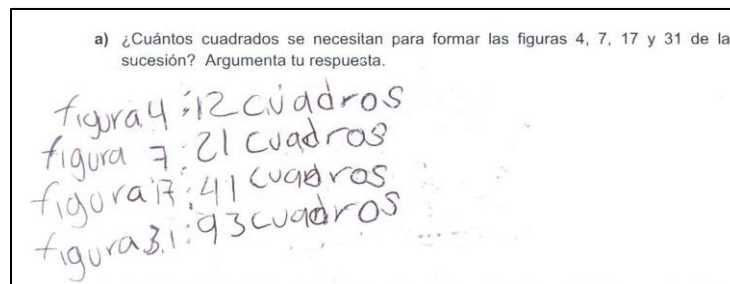 a) ¿Cuántos cuadrados se necesitan para formar las figuras 4, 7, 17 y 31 de la
sucesión? Argumenta tu respuesta.
figura 4: 12 cuadros
figura 7: 21 cuadros
figura 17: 41 cuadros
figura 31: 93 cuadros